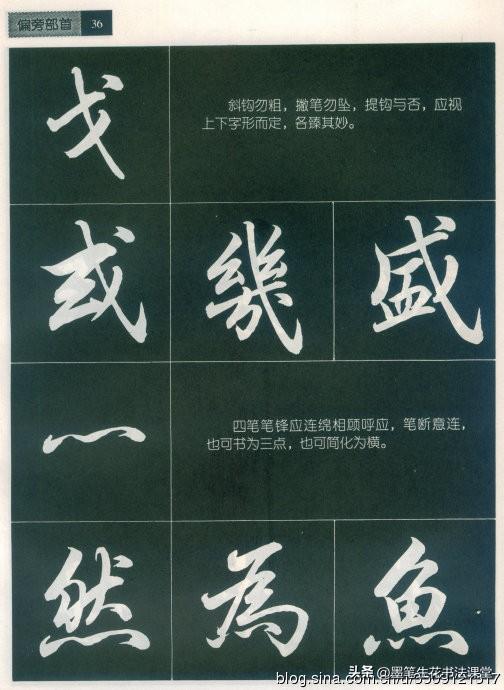 偏旁部首 36
戈
斜钩勿粗，撇笔勿坠，提钩与否，应视
上下字形而定，各臻其妙。
或 幾 盛
灬
四笔笔锋应连绵相顾呼应，笔断意连，
也可书为三点，也可简化为横。
然 為 魚
头条 @墨笔生花书法课堂